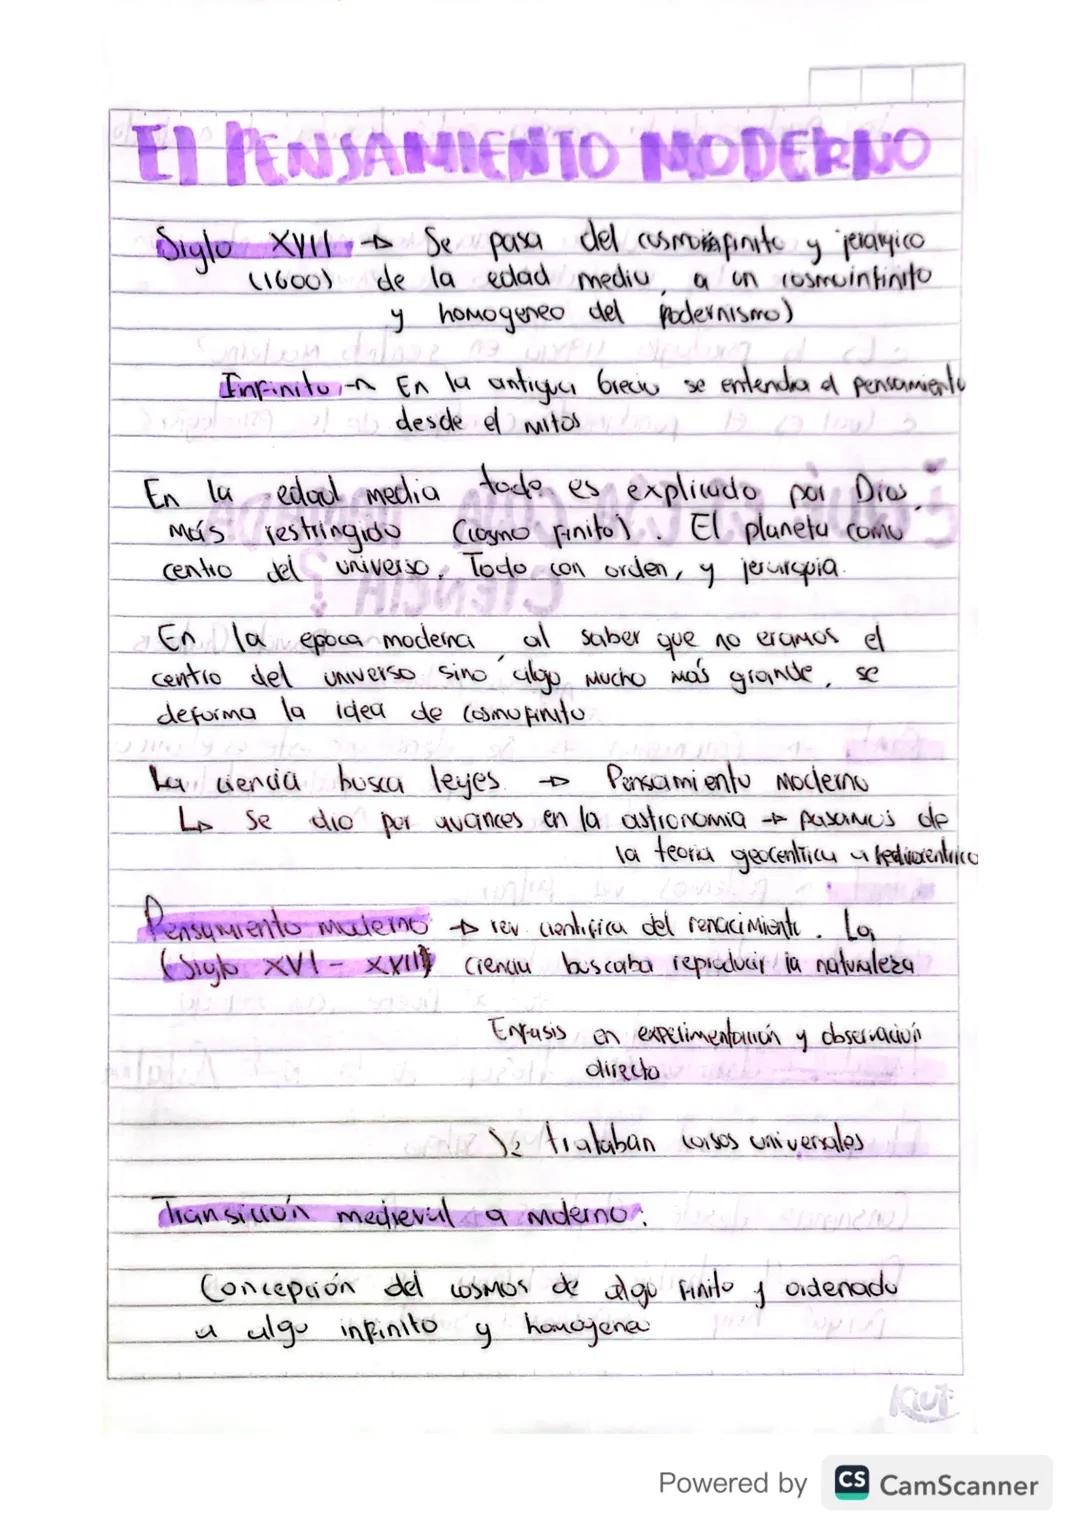 El PENSAMIENTO MODERNO
Siglo XVII → Se pasa del cosmofinito y jerarquico
(1600) de la edad media, a un cosmoinfinito
y homogeneo del modernismo)
Infinito → En la antigua Grecia se entendia el pensamiento
desde el mitos
En la edad media todo es explicado por Dios,
más restringido (cosmo finito). El planeta como
centro del universo. Todo con orden, y jerarquia.
En la epoca moderna, al saber que no eramos el
centro del universo sino algo mucho más grande, se
deforma la idea de cosmofinito
La ciencia busca leyes → Pensamiento Moderno
↳ Se dio por avances en la astronomia → pasamos de
la teoria geocentrica a
Pensamiento moderno → rev. cientifica del renacimiento. La
(Siglo XVI - XVII) ciencia buscaba reproducir la naturaleza
Enfasis en experimentación y observación
directa
Se trataban cosas universales
Transición medieval a moderno:
Concepción del cosmos de algo finito y ordenado
a algo infinito y homogeneo
Kiut
Powered by CS CamScanner